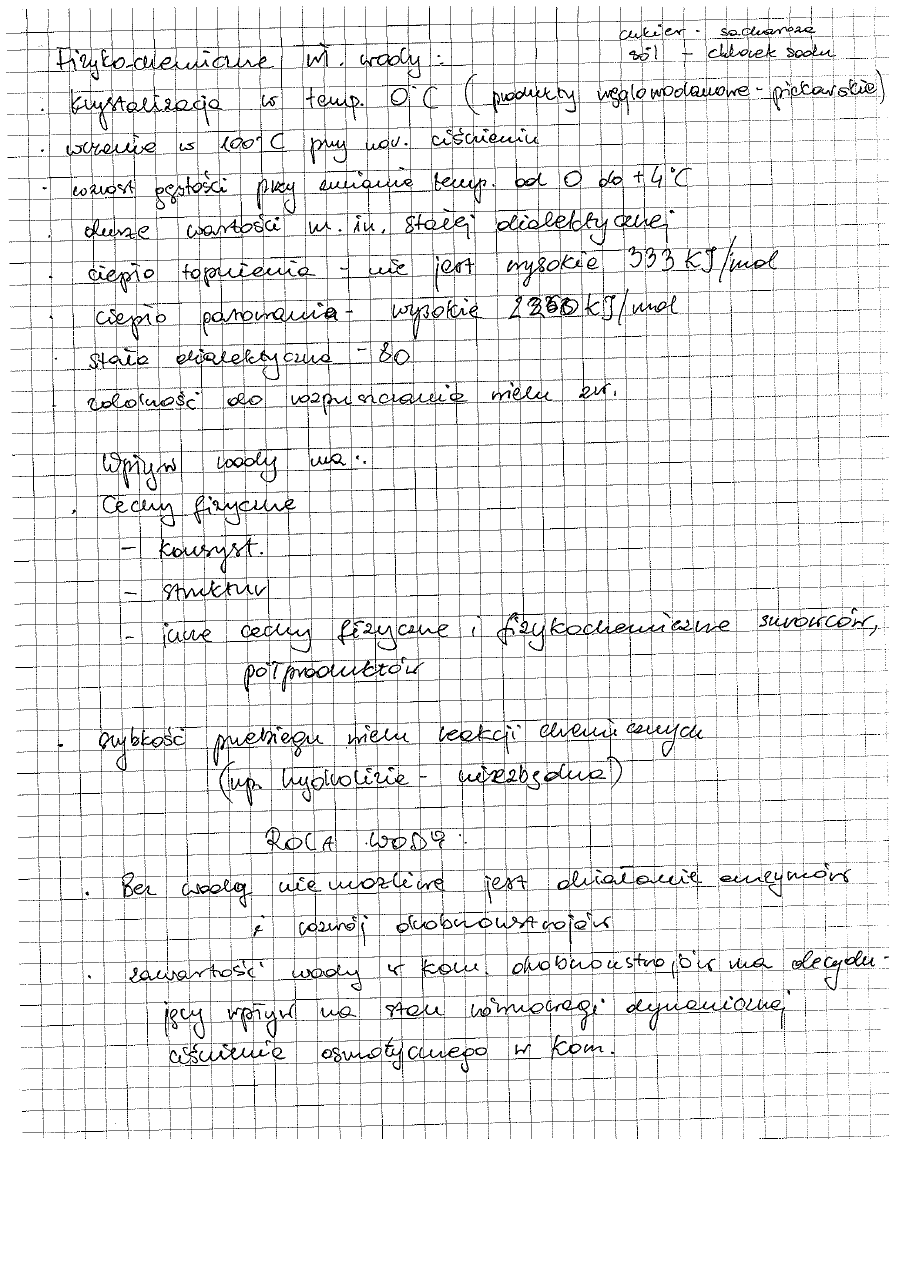 cukier - sacharoza
sól - chlorek sodu
Fizyko-chemiczne wł. wody:
· krystalizacja w temp. 0°C (produkty węglowodanowe - piekarskie)
· wrzenie w 100°C przy nor. ciśnieniu
· wzrost gęstości przy zmianie temp. od 0 do +4°C
· duże wartości m. in. stałej dialektycznej
· ciepło topnienia - nie jest wysokie 333 KJ/mol
· ciepło parowania - wysokie KJ/mol
· stała dialektyczna - 80
· zdolność do rozpuszczania wielu zw.
Wpływ wody na:
· Cechy fizyczne
- konsyst.
- struktur
- inne cechy fizyczne i fizykochemiczne surowców,
półproduktów
· szybkość przebiegu wielu reakcji chemicznych
(np. hydrolizie - niezbędna)
ROLA WODY:
· Bez wody niemożliwe jest działanie enzymów
i rozwój drobnoustrojów
· zawartość wody w kom. drobnoustrojów ma decydu-
jący wpływ na stan równowagi dynamicznej
ciśnienia osmotycznego w kom.